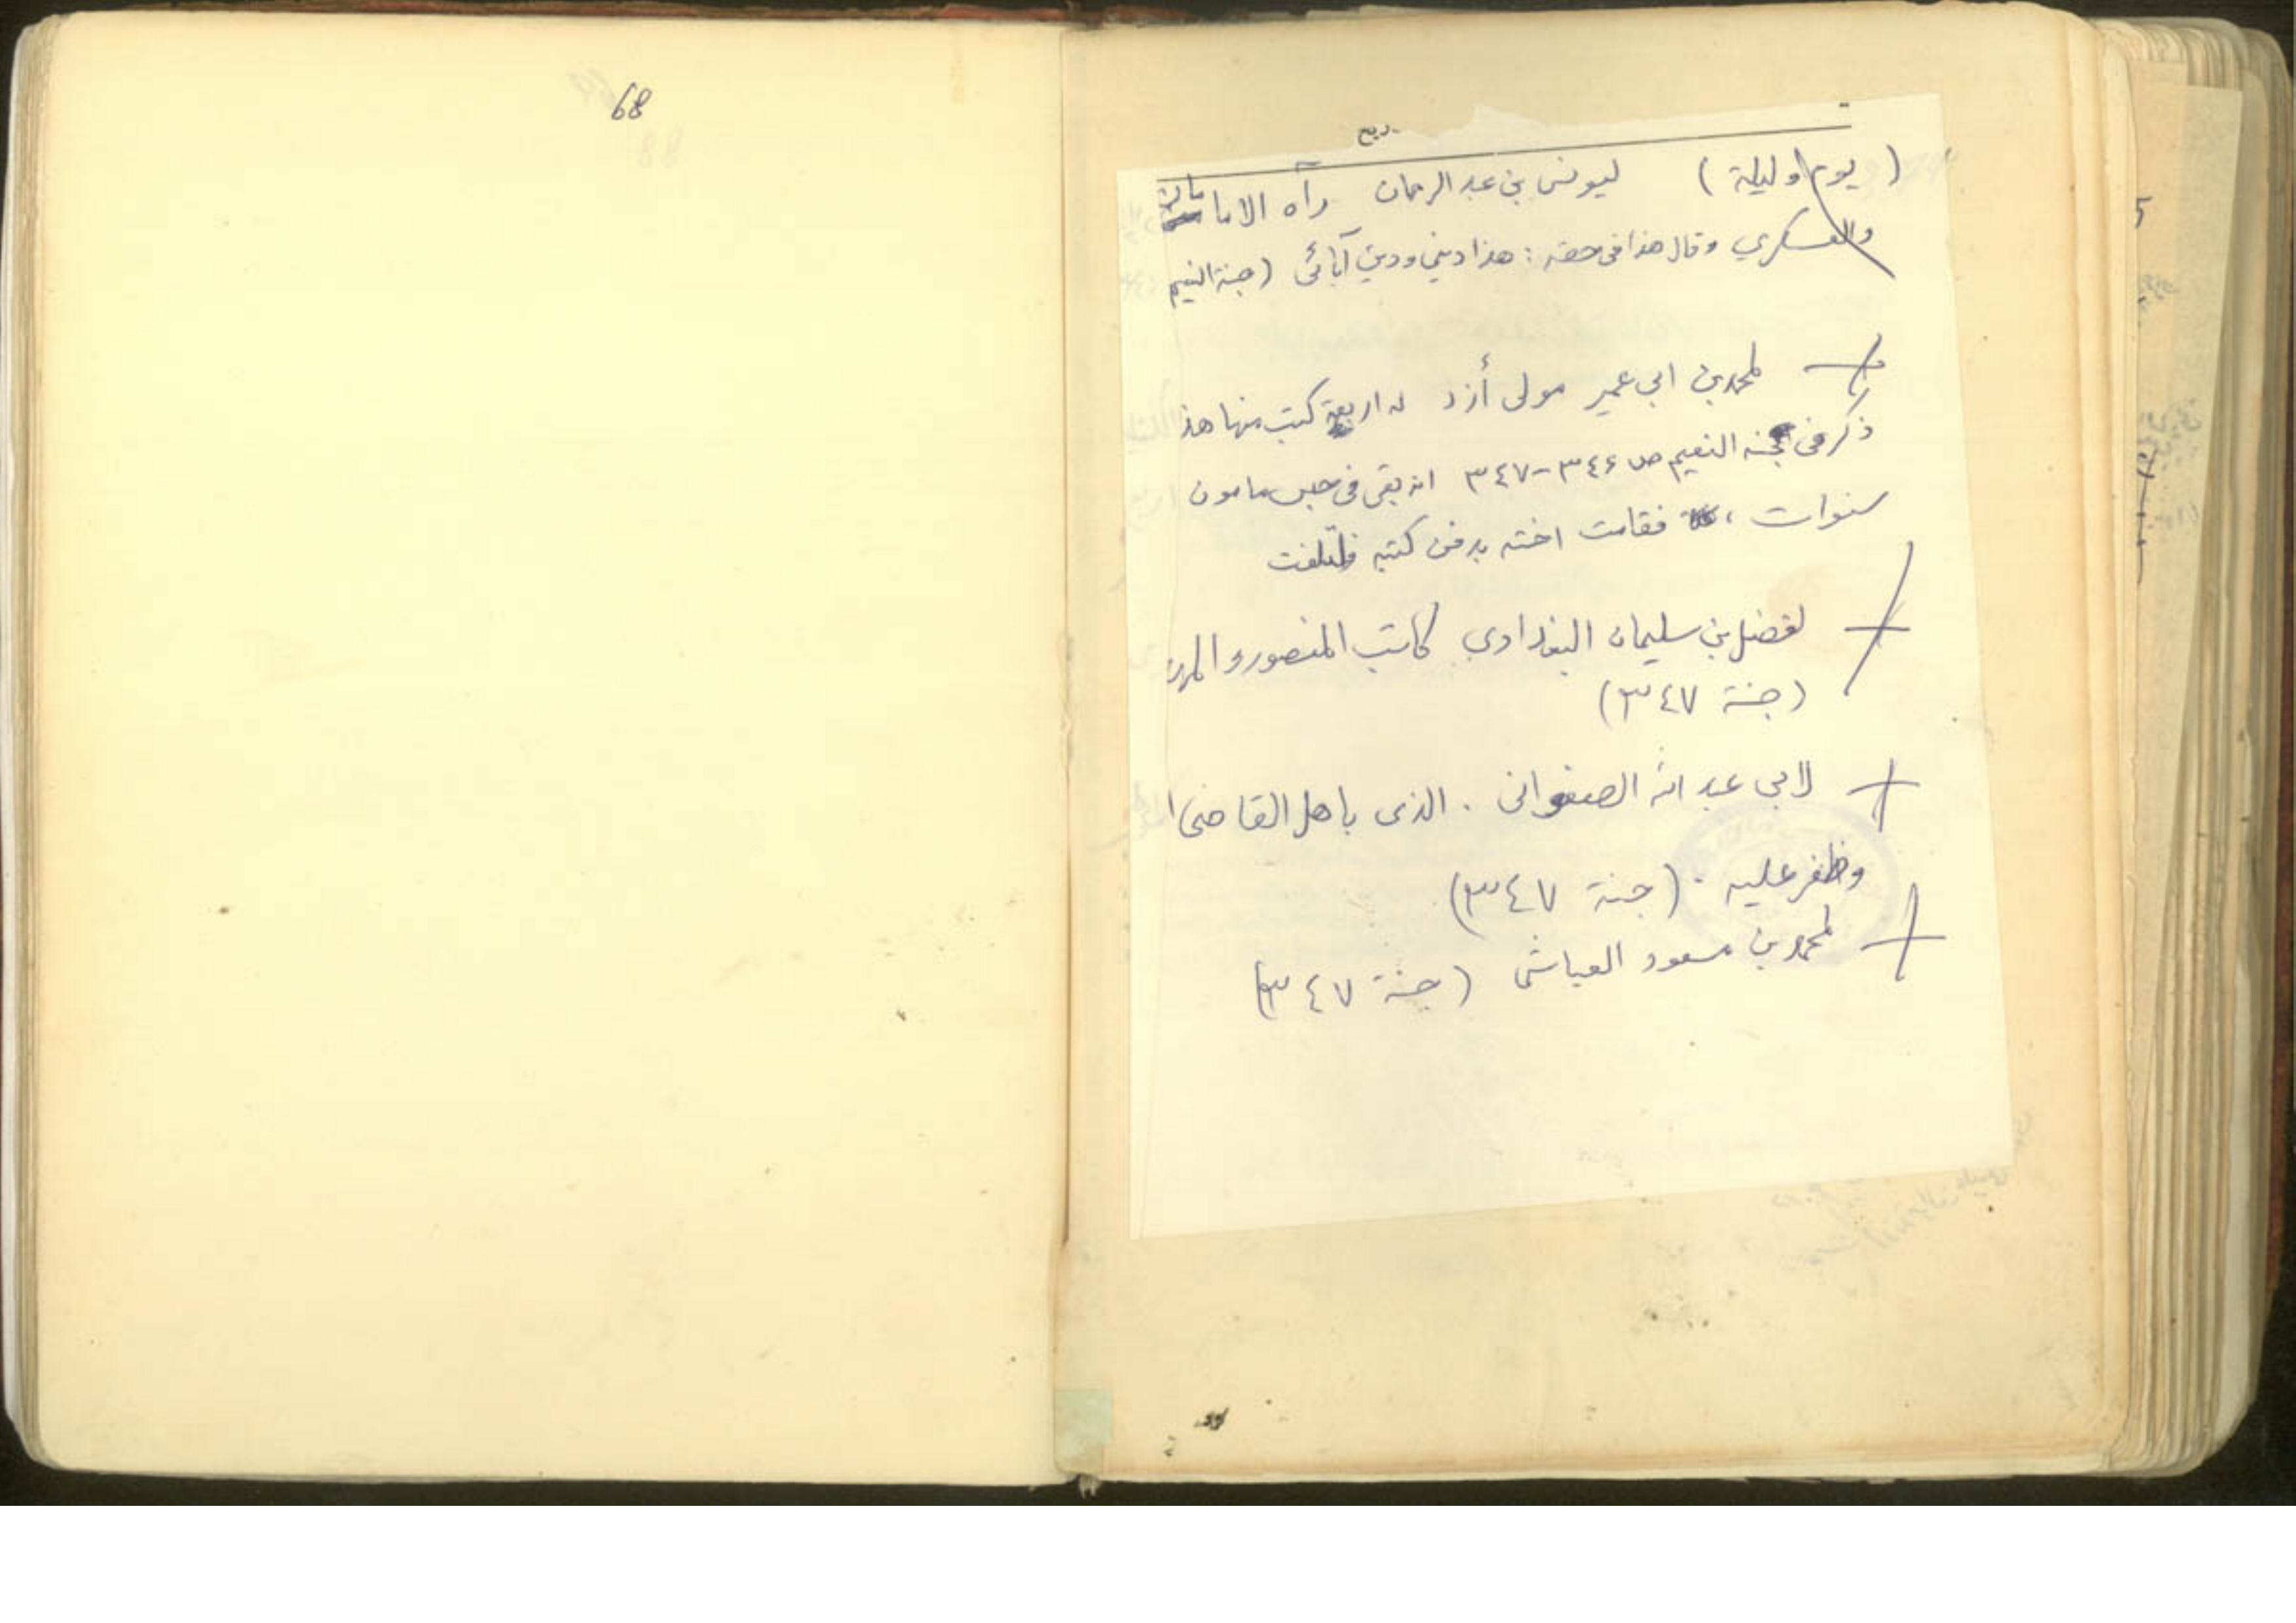 68
(يوم وليلة) ليونس بن عبد الرحمان رآه الاما
والعسكري وقال هذا في حقه : هذا ديني ودين آبائى (جنة النعيم
لمحمد بن ابي عمير مولى أزد له اربعة كتب منها هذ
ذكر في جنه النعيم ص ٣٤٦-٣٤٧ انه بقى في حبس مامون
سنوات ، فقامت اخته بدفن كتبه فتلفت
لفضل بن سليمان البغدادي كاتب المنصور و
(جنة ٣٤٧)
لابي عبد الله الصفوانى . الذى باهل القاضى ا
وظفر عليه . (جنة ٣٤٧)
لمحمد بن مسعود العياشى (جنة ٣٤٧)